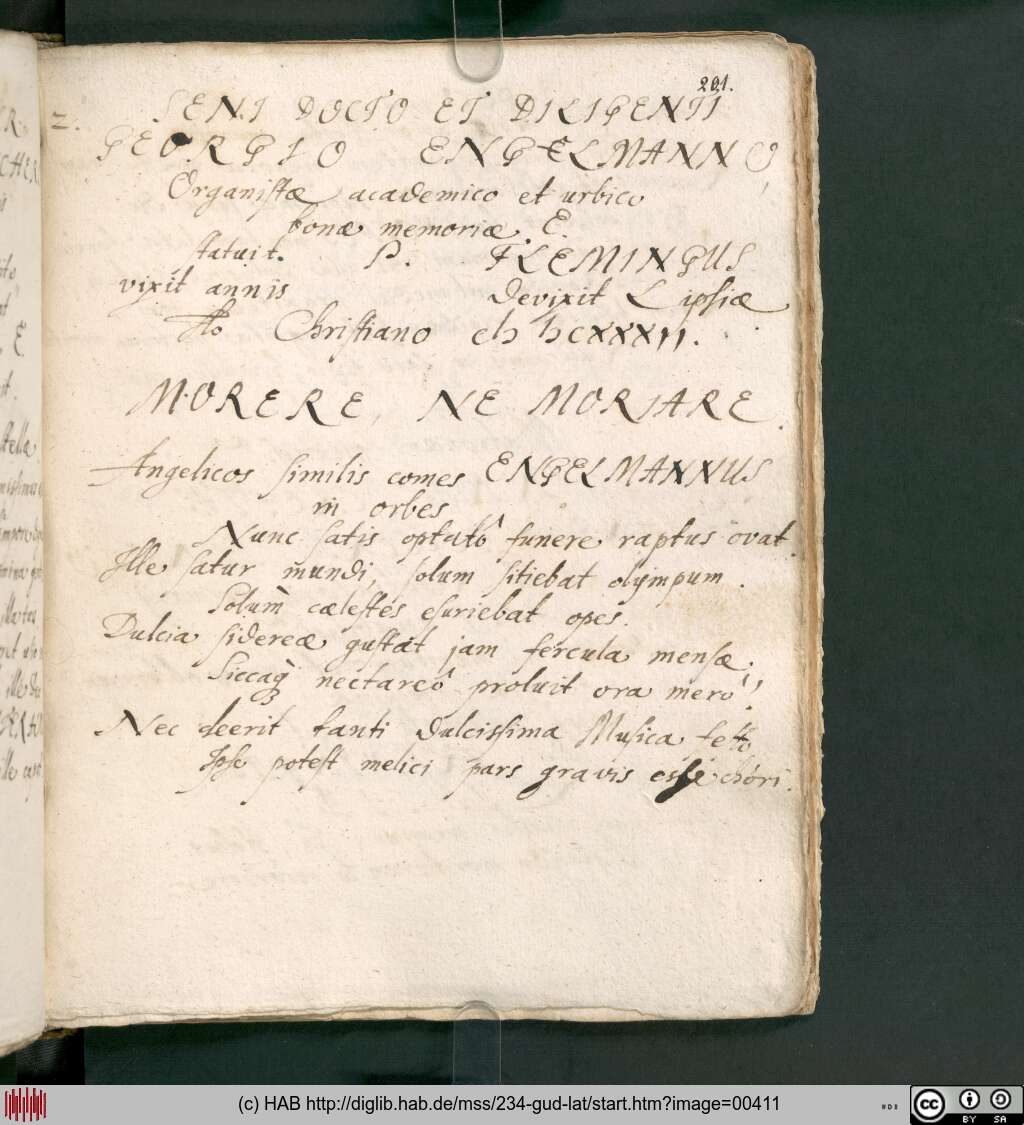 201.
2. SENI DOCTO ET DILIGENTI
GEORGIO ENGELMANNO,
Organistæ academico et urbico
bonæ memoriæ. E.
statuit. P. FLEMINGUS
vixit annis devixit Lipsiæ
Ao Christiano
MORERE, NE MORIARE.
Angelicos similis comes ENGELMANNUS
in orbes
Nunc satis optatô funere raptus ovat.
Ille satur mundi, solum sitiebat olympum.
Solum cælestes esuriebat opes.
Dulcia sidereæ gustat jam fercula mensæ,
Siccaq́ nectareô proluit ora merô!
Nec deerit tanti dulcissima Musica
Ipse potest melici pars gravis esse chori.
(c) HAB http://diglib.hab.de/mss/234-gud-lat/start.htm?image=00411
cc BY SA